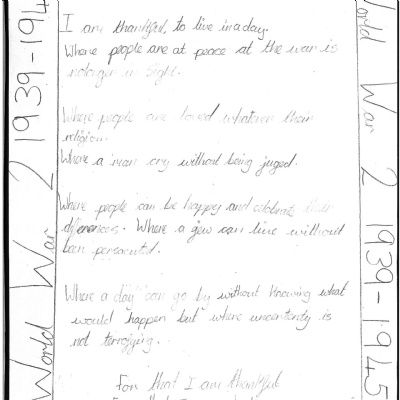 World War 2 1939-194
I am thankful, to live in a day.
Where people are at peace at the war is
no longer in sight.
Where people are loved whatever their
religion.
Where a man cry without being juged.
Where people can be happy and celebrate their
differences. Where a jew can live without
been persecuted.
Where a day can go by without knowing what
would happen but where uncertenty is
not terrofying.
For that I am thankful
World War 2 1939-1945